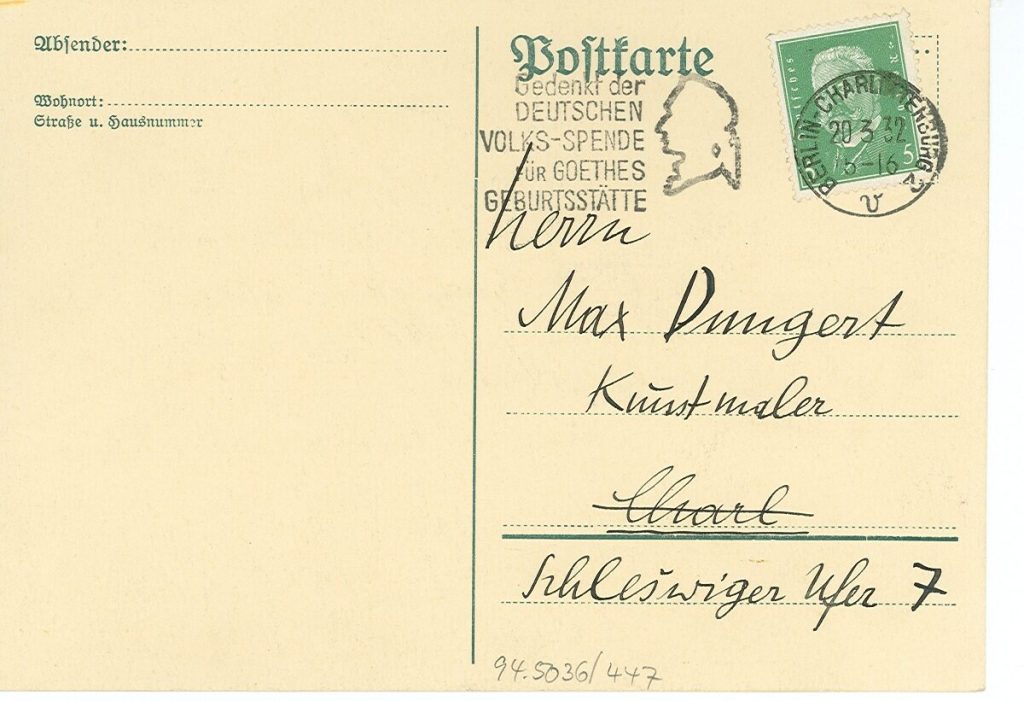 Absender:
Wohnort:
Straße u. Hausnummer
Postkarte
Gedenkt der
DEUTSCHEN
VOLKS-SPENDE
FÜR GOETHES
GEBURTSSTÄTTE
BERLIN-CHARLOTTENBURG 2
20.3.32
15-16
v
5
Herrn
Max Dungert
Kunstmaler
Charl
Schleswiger Ufer 7
94.5036/447